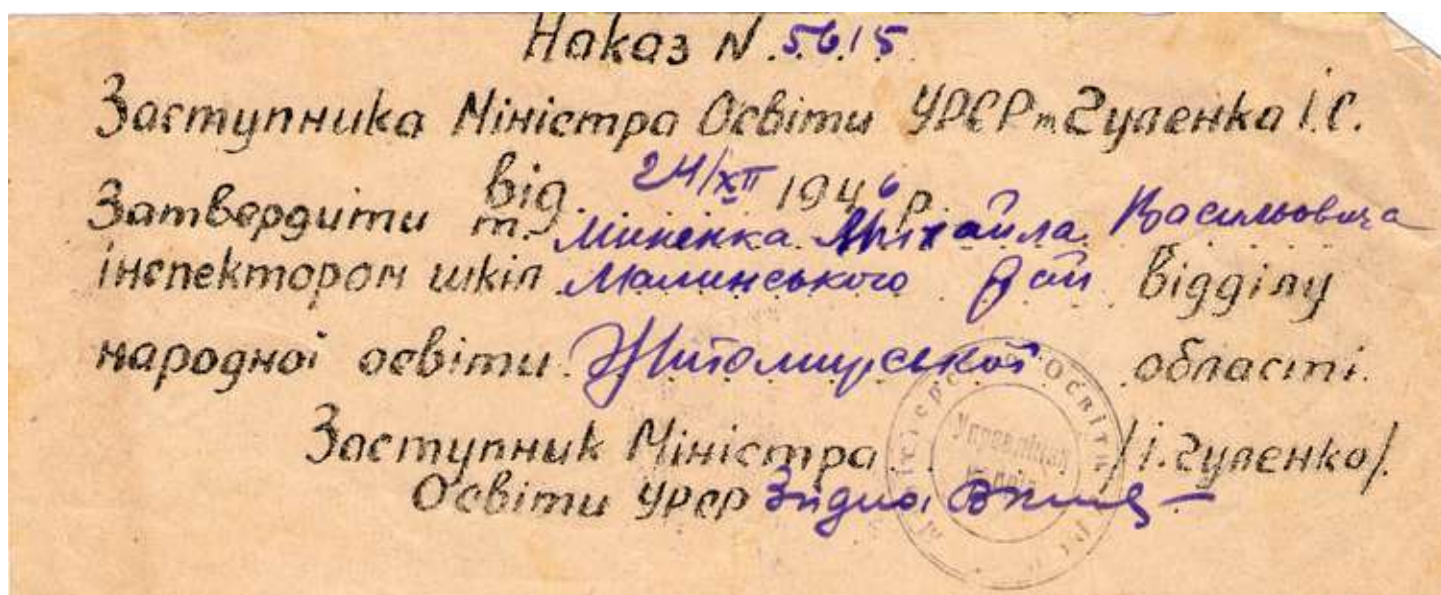 Наказ N 5615
Заступника Міністра Освіти УРСР т. Гуленка І.С.
від 24/XII 1946 р.
Затвердити т. Миненка Михайла Васильовича
інспектором шкіл Малинського Рай відділу
народної освіти Житомирської області.
Заступник Міністра /І. Гуленко/.
Освіти УРСР Згідно
Міністерство Освіти УРСР
Управління